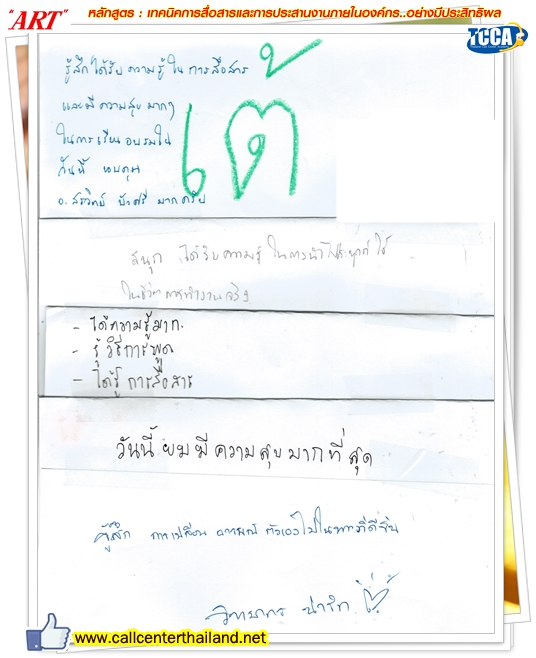 "ART" หลักสูตร : เทคนิคการสื่อสารและการประสานงานภายในองค์กร..อย่างมีประสิทธิผล
TCCA
รู้สึกได้รับความรู้ในการสื่อสาร
และมีความสุขมากๆ
ในการเรียนอบรมใน
วันนี้ ขอบคุณ
อ. มากครับ
เต้
สนุก ได้รับความรู้ในการนำไปประยุกต์ใช้
ในชีวิตการทำงานจริง
- ได้ความรู้มาก.
- รู้วิธีการพูด
- ได้รู้การสื่อสาร
วันนี้ผมมีความสุขมากที่สุด
รู้สึก การเปลี่ยนอารมณ์ตัวเองไปในทางที่ดีขึ้น
วิทยากร น่ารัก
www.callcenterthailand.net